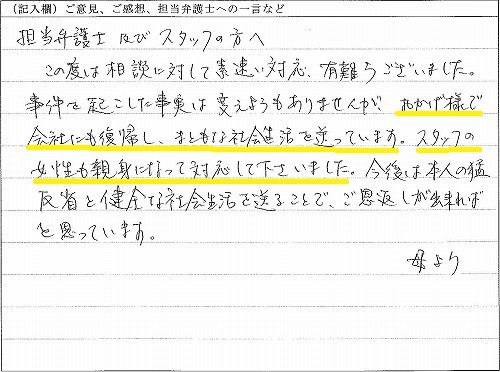 (記入欄)ご意見、ご感想、担当弁護士への一言など
担当弁護士 及び スタッフの方へ
この度は相談に対して素速い対応、有難うございました。
事件を起こした事実は変えようもありませんが、おかげ様で
会社にも復帰し、まともな社会生活を送っています。スタッフの
女性も親身になって対応して下さいました。今後は本人の猛
反省と健全な社会生活を送ることで、ご恩返しが出来れば
と思っています。
母より